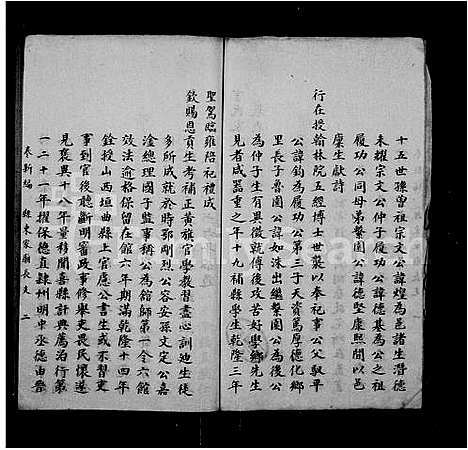 十五世孫曾祖宗文公諱煌為邑諸生潛德
未耀宗文公仲子履功公諱德基為公之祖
履功公同母弟繫園公諱德堅康熙間以邑
廩生獻詩
行在授翰林院五經博士世襲以奉祀事公父馭平
公諱鈞為履功公第三子天資篤厚德化鄉
里長子魯園公諱如洙出繼繫園公為後公
為仲子生有異徵就傅後攻苦好學鄉先生
見者咸器重之年十九補縣學生乾隆三年
聖駕臨雍陪祀禮成
欽賜恩貢生考補正黃旗官學教習盡心訓迪生徒
多所成就於時鄂剛烈公容安孫文定公嘉
淦總理國子監事稱公為館師第一令六館
效法逾格保留在館六年期滿乾隆十四年
銓授山西垣曲縣上官慮公書生或不習吏
事到官後聽斷明審政事修舉吏畏民懷遂
見褒與十八年量移聞喜縣計典薦治行最
二十一年擢保德直隸州明中丞德由
奉新編 縣東家廟長支 二